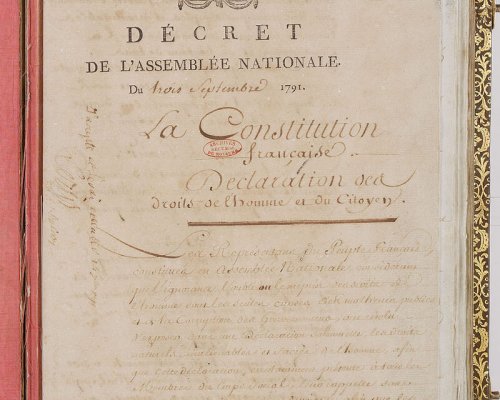 DÉCRET
DE L'ASSEMBLÉE NATIONALE.
Du trois Septembre 1791.
La Constitution
française
ARCHIVES
Déclaration des
droits de l'homme et du Citoyen.
Les Représentans du Peuple Français
constitués en Assemblée Nationale, considérant
que l'ignorance, l'oubli ou le mépris des droits de
l'homme sont les seules causes des malheurs publics
et de la Corruption des Gouvernemens, ont résolu
d'exposer dans une Déclaration solemnelle, les droits
naturels, inaliénables et sacrés de l'homme, afin
que cette déclaration, constamment présente à tous les
Membres du Corps social, leur rappelle sans